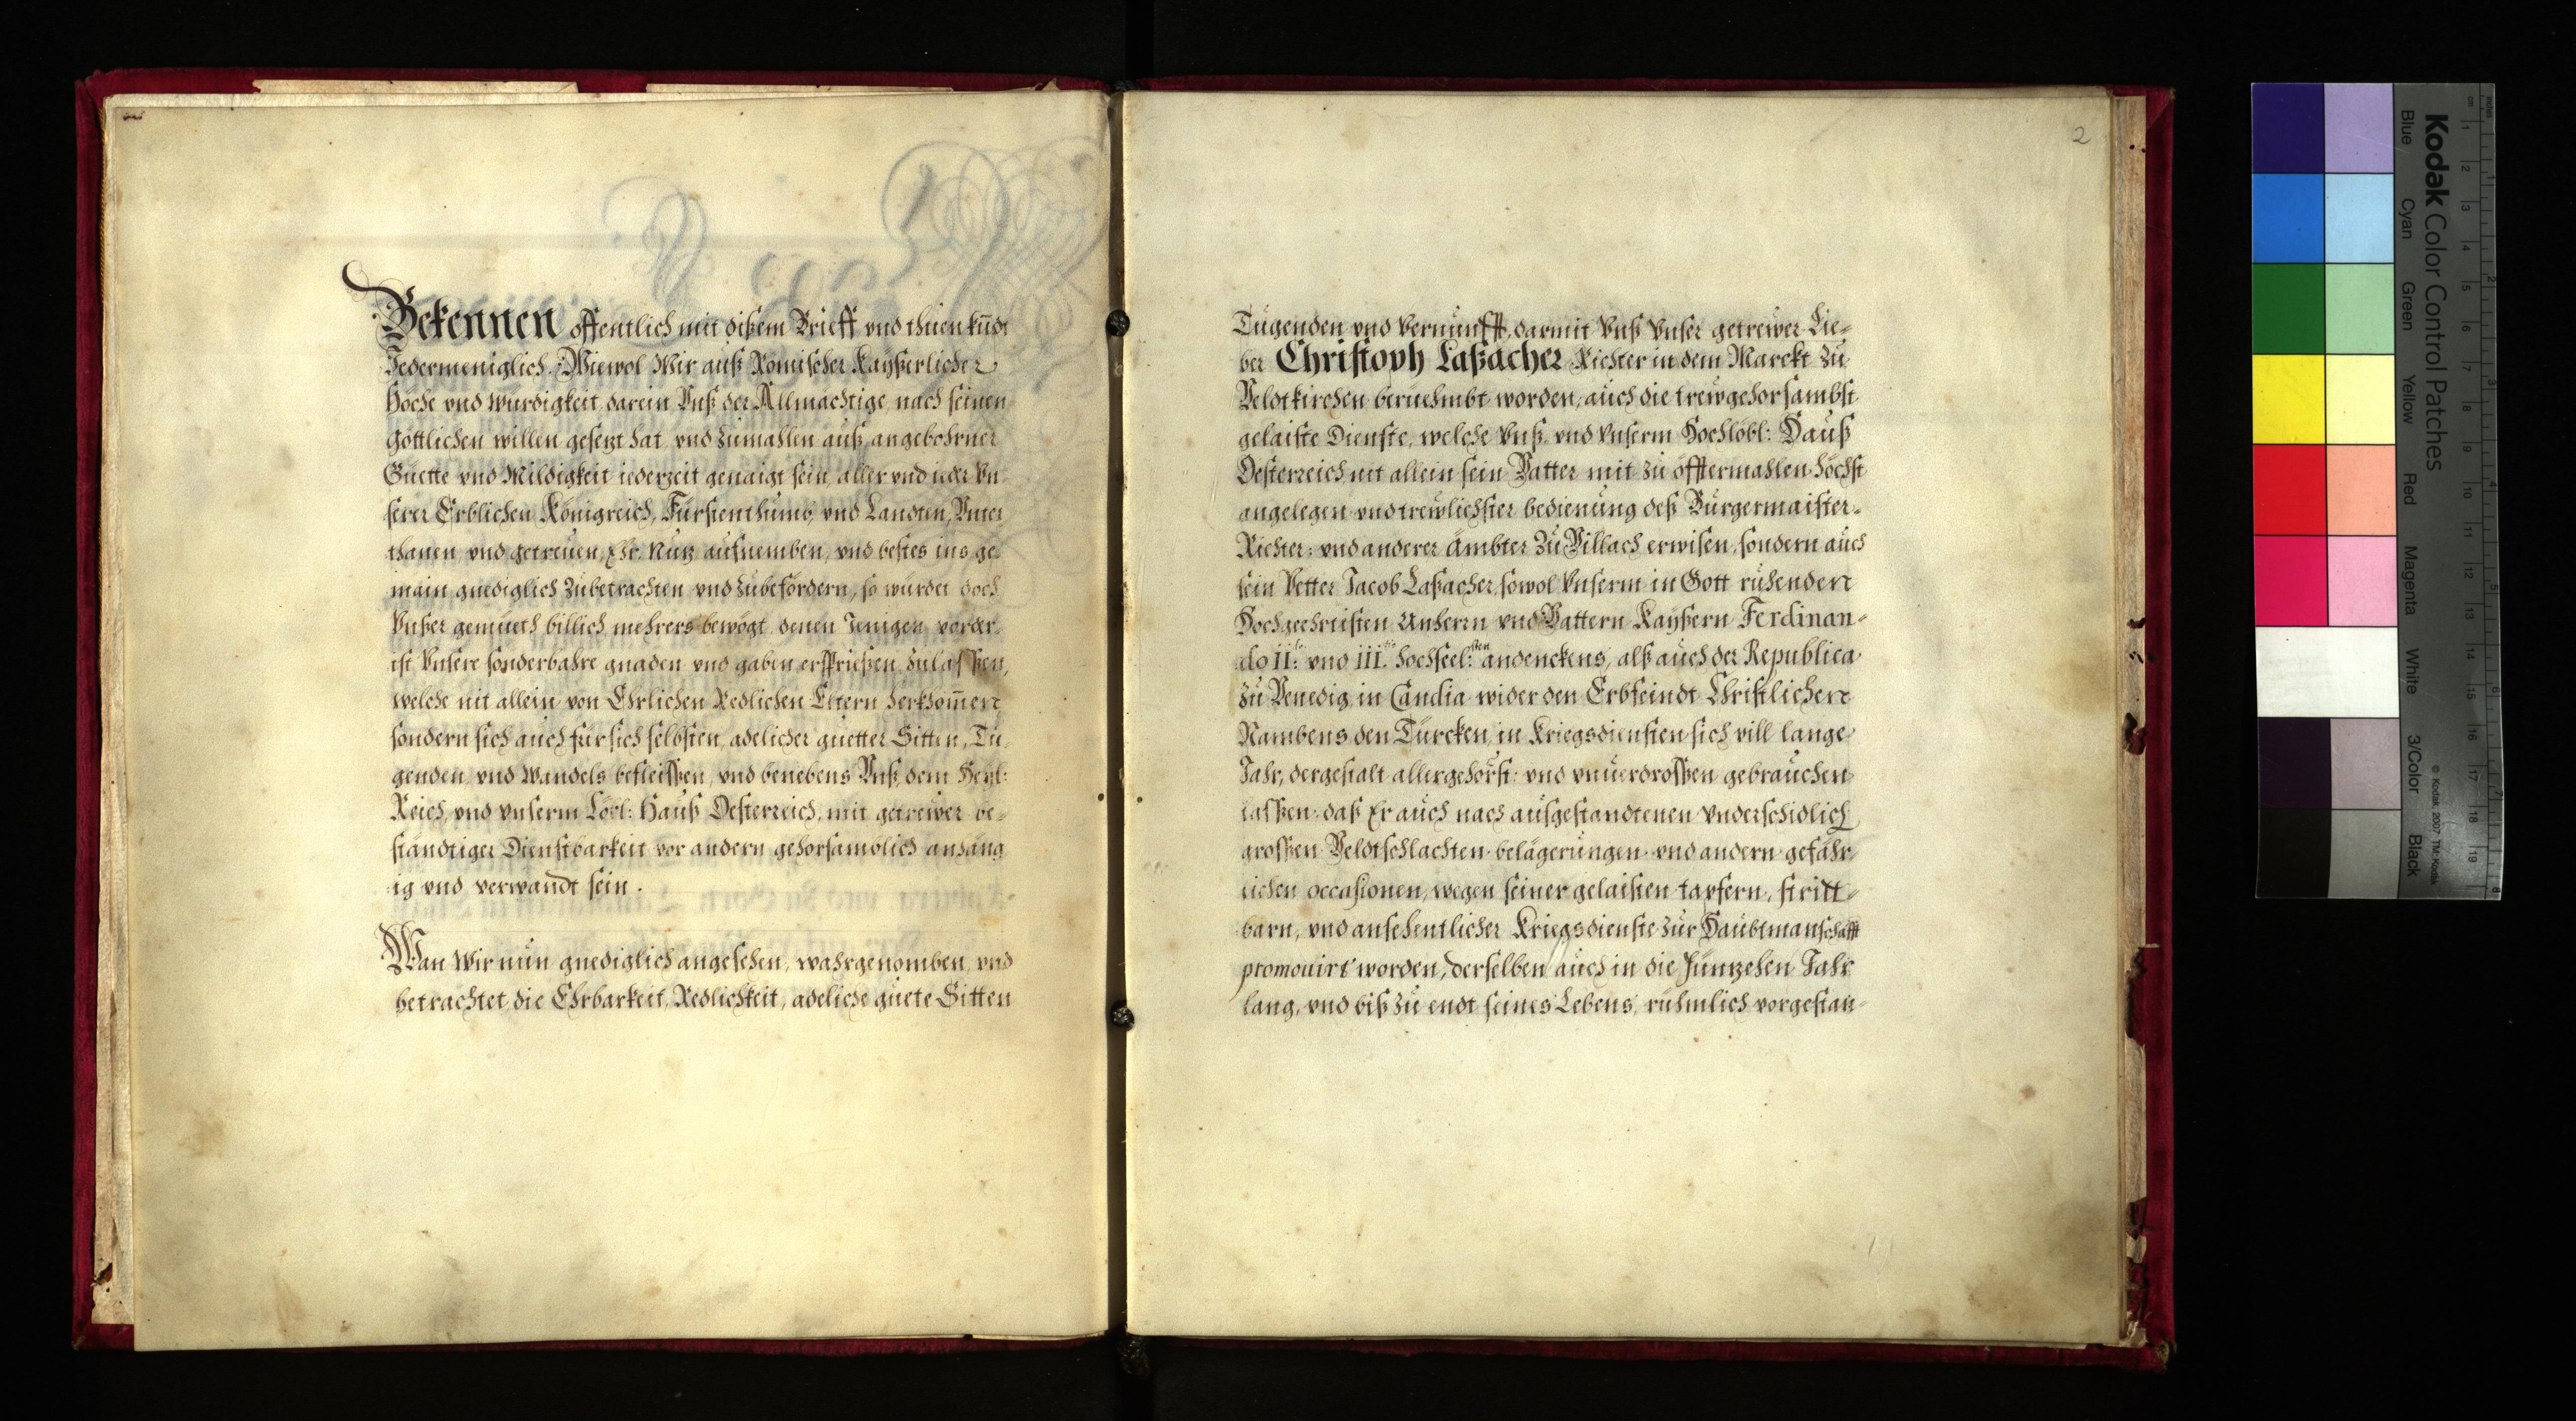 Bekennen offentlich mit dißem Brieff vnd thuen kund
Jedermeniglich. Wiewol Wir auß Römischer Kayßerlicher
Höche vnd Würdigkeit, darein Vnß der Allmächtige nach seinen
Göttlichen willen gesezt hat vnd zumahlen auß angebohrner
Guette vnd Mildigkeit iederzeit genaigt sein, aller vnd ieder Vn
serer Erblichen Königreich, Fürstenthumb, vnd Landten, Vnter
thanen, vnd getreuen, Ehr, Nuz aufnemben, vnd bestes ins ge
main gnediglich zubetrachten vnd zubefördern, so würdet doch
Vnßer gemüeth billich mehrers bewögt denen Jenigen vorder
ist Vnsere sonderbahre gnaden vnd gaben erspriesßen zulasßen,
welche nit allein von Ehrlichen Redlichen Eltern herkhom̅en
sondern sich auch für sich selbsten, adelicher guetter Sitten, Tu
genden vnd Wandels befleisßen, vnd benebens Vnß, dem Heyl:
Reich, vnd vnserm Löbl: Hauß Oesterreich, mit getreẅer be-
ständtiger Dienstbarkeit vor andern gehorsamblich anhäng
ig vnd verwandt sein.
Wan Wir nun gnediglich angesehen, wahrgenomben, vnd
betrachtet die Ehrbarkeit, Redlichkeit, adeliche guete Sitten
2
Tugenden vnd Vernunfft, darmit Vnß Vnser getreẅer Lie-
ber Christoph Laßacher Richter in dem Marckt zu
Veldtkirchen beruehmbt worden, auch die treẅgehorsambst
gelaiste Dienste, welche Vnß vnd Vnserm Hochlöbl: Hauß
Oesterreich nit allein sein Vatter mit zu offtermahlen höchst
angelegen vnd treẅlichster bedienung deß Burgermaister-
Richter: vnd anderer ämbter zu Villach erwisen, sondern auch
sein Vetter Jacob Laßacher, sowol Vnserm in Gott ruhenden
Hochgeehrtisten Anherrn vnd Vattern Kayßern Ferdinan-
do II: vnd III: hochseel:sten andenckens, alß auch der Republica
zu Venedig in Candia wider den Erbfeindt Christlichen
Nambens den Türcken, in Kriegsdiensten sich vill lange
Jahr, dergestalt allergehorst: vnd vnuerdrosßen gebrauchen
lasßen, daß Er auch nach außgestandtenen vnderschidlich
grosßen Veldtschlachten belägerungen vnd andern gefähr
lichen occasionen, wegen seiner gelaisten tapfern, stritt-
barn, vnd ansehentlicher Kriegsdienste zur Haubtmanschafft
promouirt worden, derselben auch in die funzehen Jahr
lang, vnd biß zu endt seines Lebens, rühmlich vorgestan-
Kodak Color Control Patches
Blue
Cyan
Green
Yellow
Red
Magenta
White
3/Color
Black
© Kodak, 2007 TM: Kodak